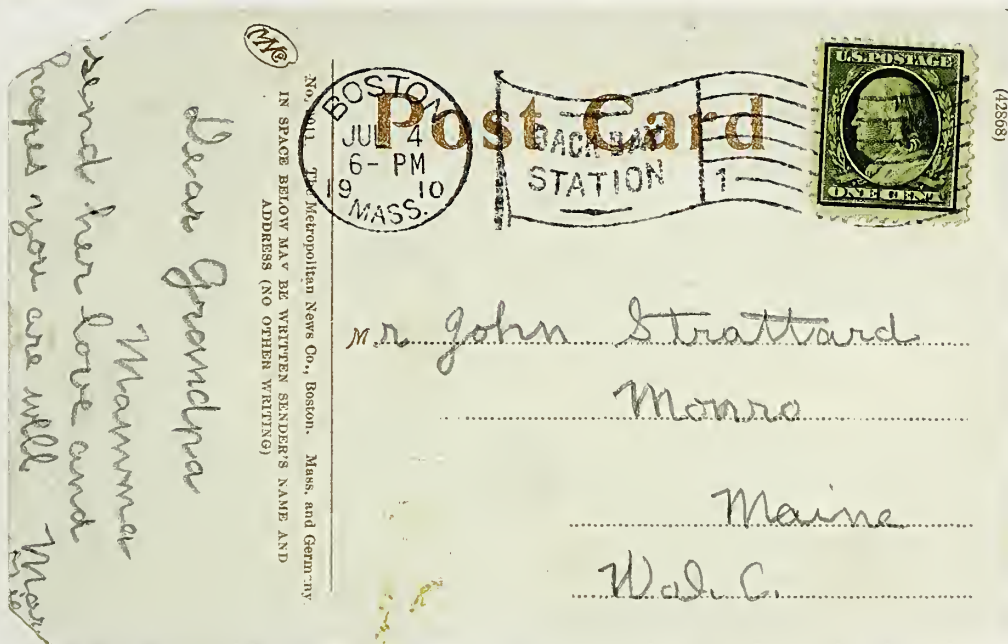 Post Card
(42868)
BOSTON
JUL 4
6- PM
19 10
MASS.
BACK BAY
STATION
1
U.S. POSTAGE
ONE CENT
Mr John Strattard
Monro
Maine
Wal. C.
The Metropolitan News Co., Boston. Mass. and Germany
IN SPACE BELOW MAY BE WRITTEN SENDER'S NAME AND
ADDRESS (NO OTHER WRITING)
Dear Grandpa
Mamma
send her love and
hopes you are well